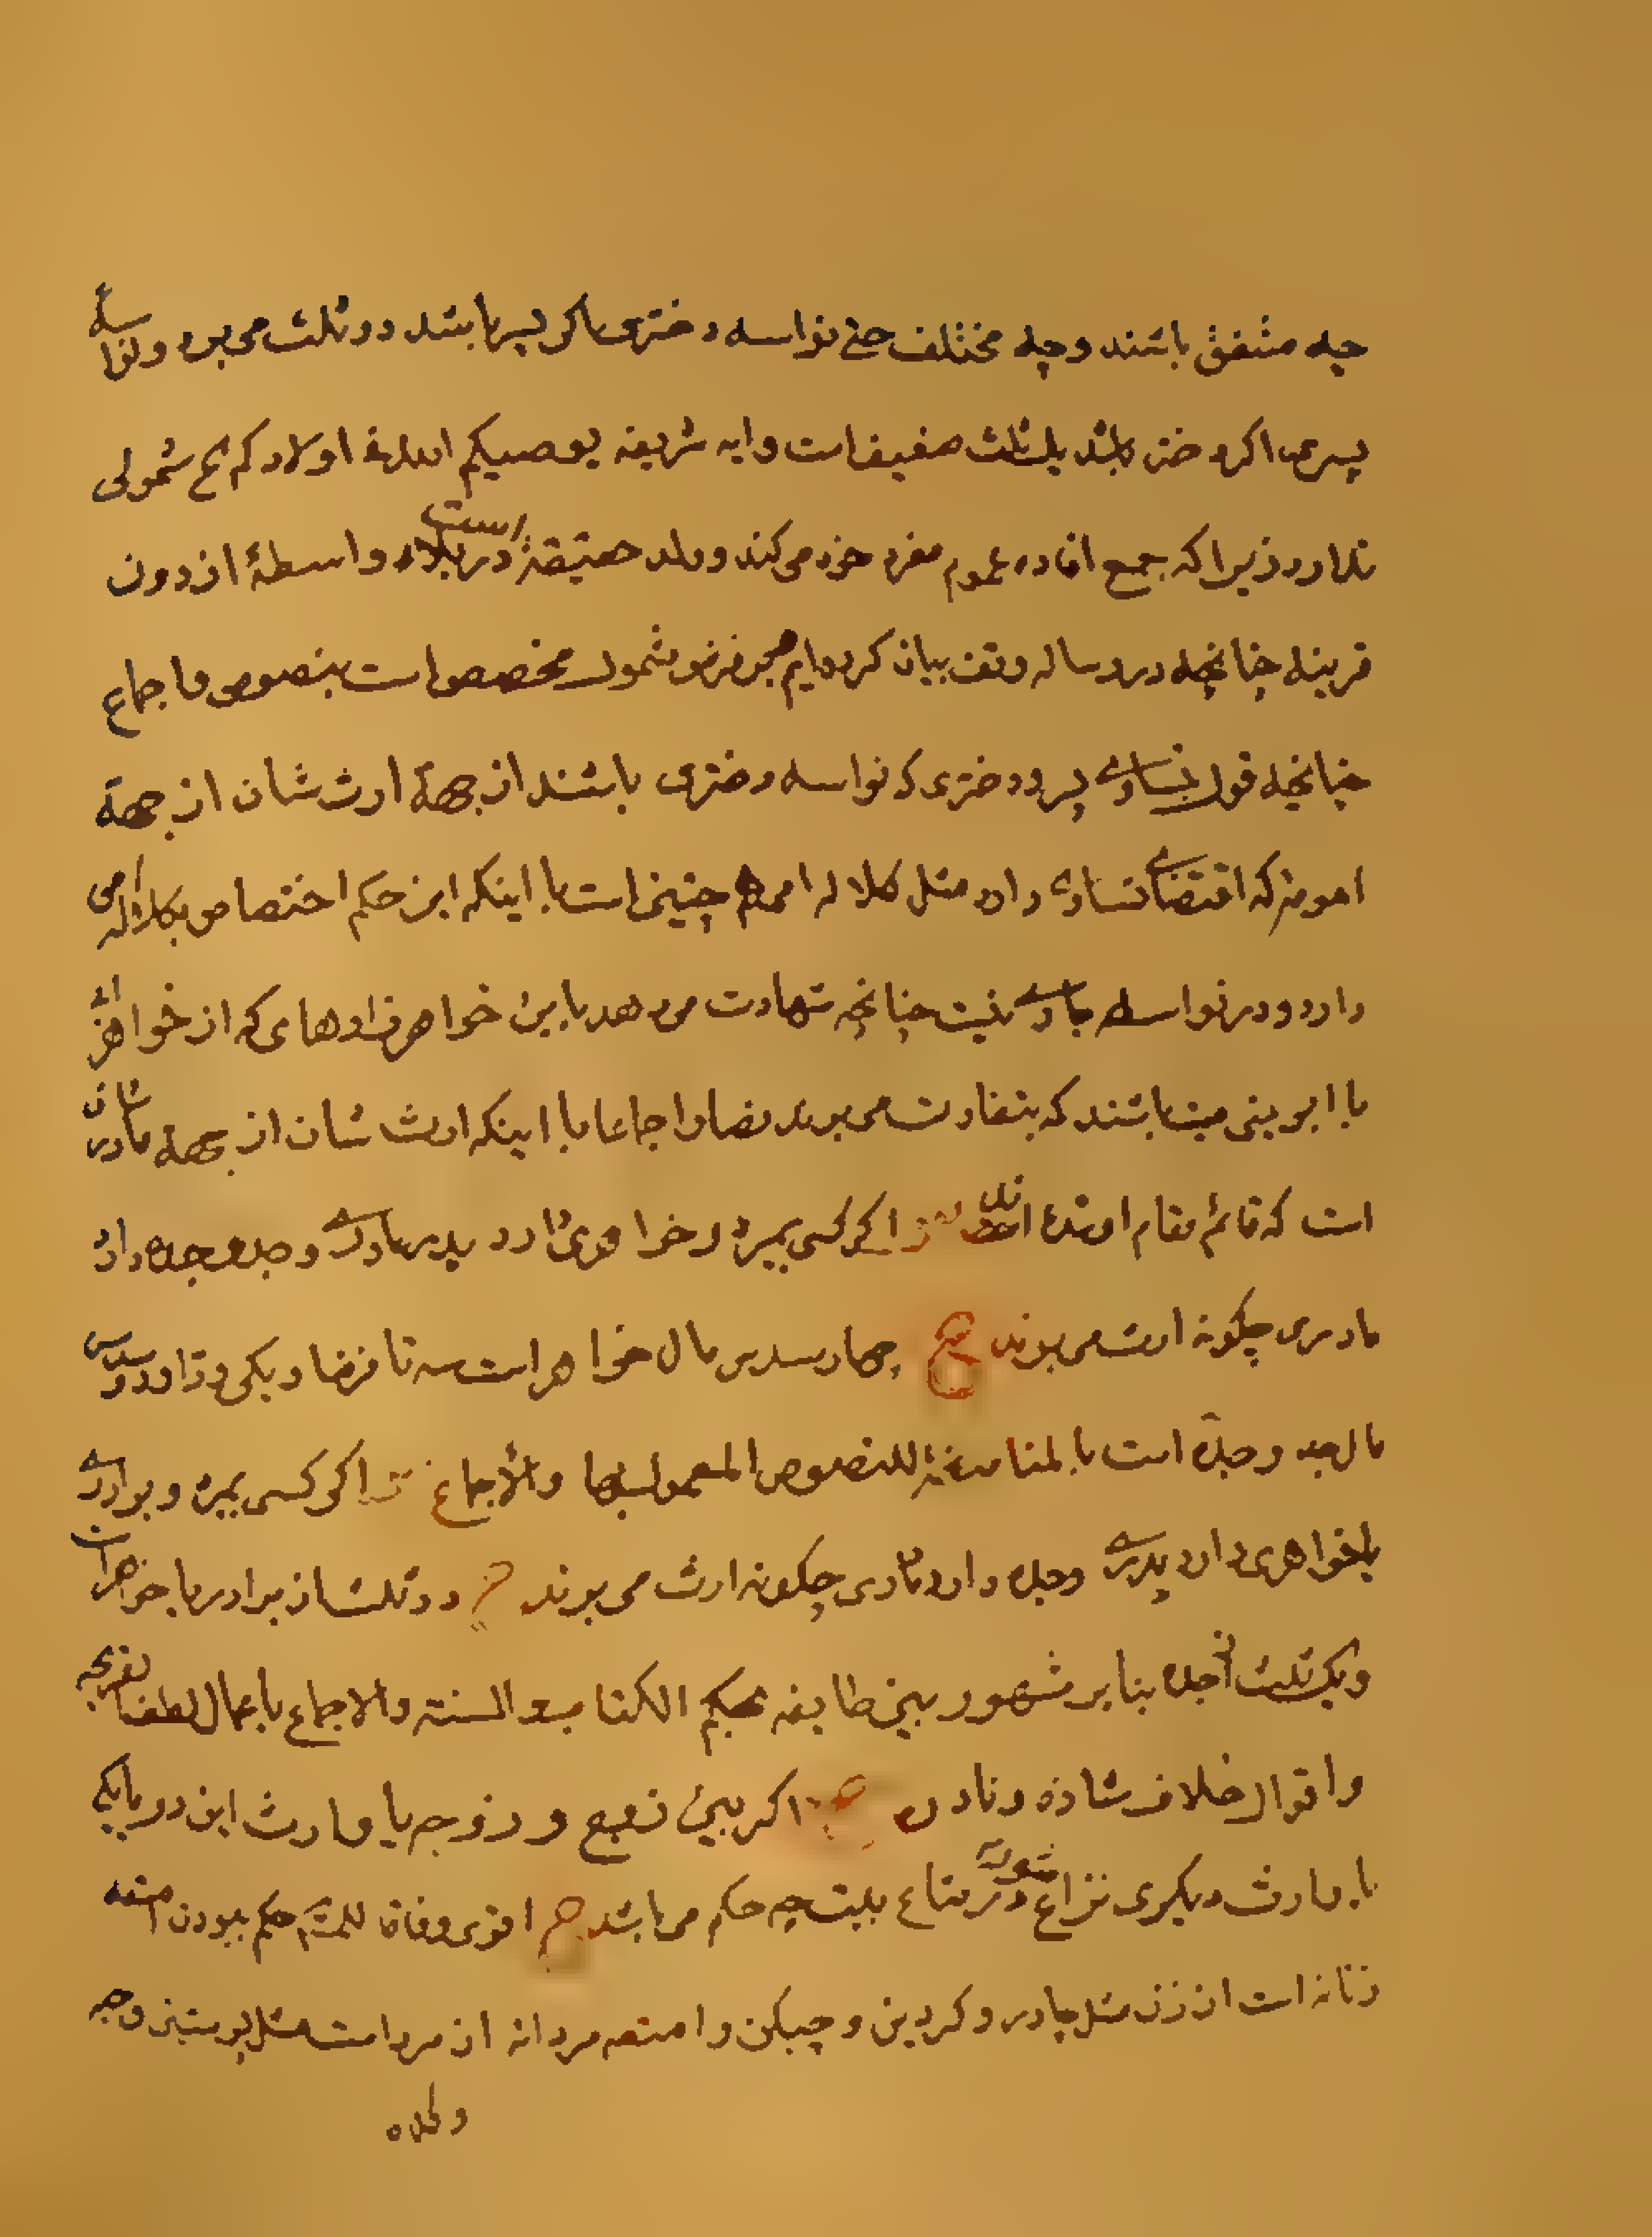 چه متفق باشند وچه مختلف حتی نواسه دختری اگر پسر باشد دو ثلث می برد ونواسه
پسری اگر دختر باشد یک ثلث ضعیف است وایه شریفه یوصیکم الله فی اولادکم هیچ شمولی
ندارد زیرا که جمع افاده عموم مفرد خود می کند وولد حقیقة در بلا واسطۀ است از دون
قرینه چنانچه در رساله وقف بیان کرده ایم وبر فرض شمول مخصص است بنصوص واجماع
چنانچه قول بتساوی پسر ودختری که نواسه دختری باشند از جهة ارث شان از جهة
امومة که اقتضای تساوی دارد مثل کلاله امی هم چنین است با اینکه این حکم اختصاص بکلاله امی
دارد ودر نواسه جاری نیست چنانچه شهادت می دهد باین خواهرزادهای که از خواهر ابی
یا ابوینی میت باشند که بتفاوت می برند نصا واجماعا با اینکه ارث شان از جهة مادر شان
است که قائم مقام او شده اند س اگر کسی بمیرد وخواهری دارد پدر مادری وجد وجده دارد
مادری چگونه ارث می برند ج چهار سدس مال خواهر است سه تا فرضا ویکی ردا ودو سدس
مال جد وجده است بالمناصفة للنصوص المعمول بها والأجماع س اگر کسی بمیرد وبرادری
یا خواهری دارد پدری وجده دارد مادری چگونه ارث می برند ج دو ثلث از برادر یا خواهر است
ویک ثلث از جده بنابر مشهور بین طایفه بحکم الکتاب والسنة والاجماع باعمال لطف القریحه
واقوال خلاف شاذه ونادره س اگر بین زوج و زوجه یا وارث این دو یا یکی
با وارث دیگری نزاع شود در متاع بیت چه حکم می باشد ج اقوی وفاقا للمشهور حکم ببودن امتعه
زنانه است از زن مثل چادر و کردین و چپکن وامتعه مردانه از مرد است مثل پوستین وجبه
وکلاه